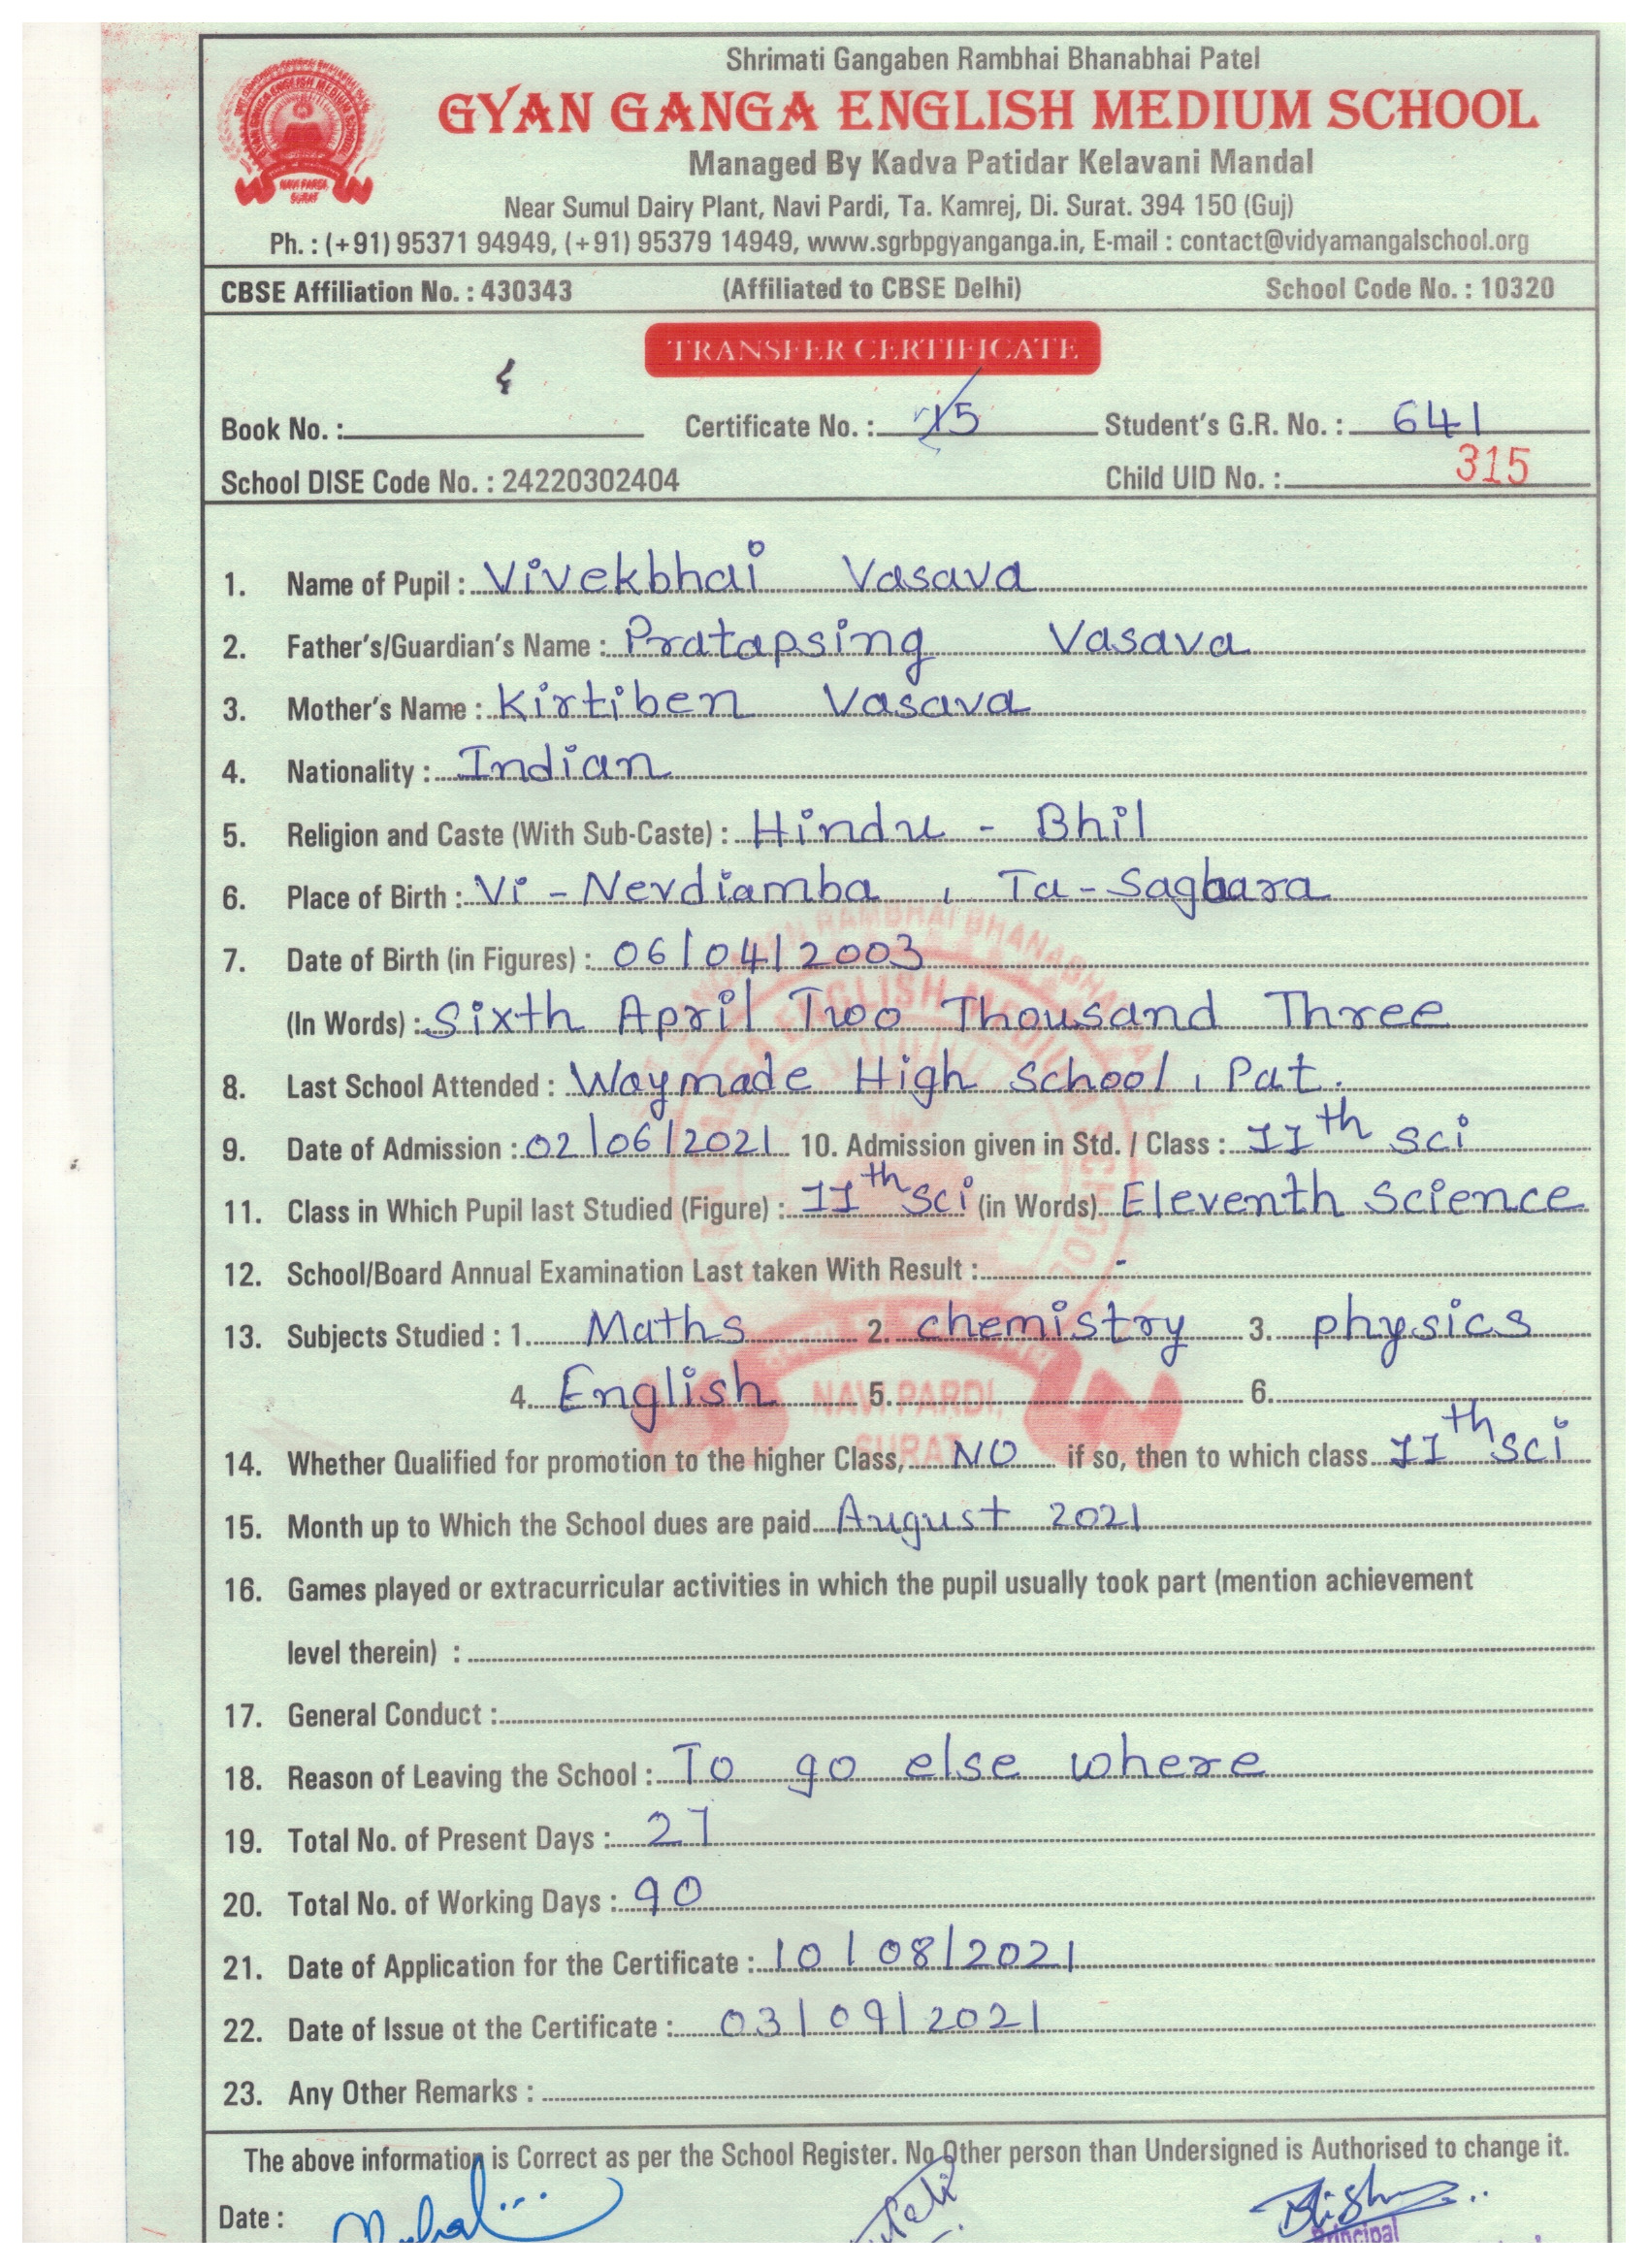 Shrimati Gangaben Rambhai Bhanabhai Patel
GYAN GANGA ENGLISH MEDIUM SCHOOL
Managed By Kadva Patidar Kelavani Mandal
Near Sumul Dairy Plant, Navi Pardi, Ta. Kamrej, Di. Surat. 394 150 (Guj)
Ph. : (+91) 95371 94949, (+91) 95379 14949, www.sgrbpgyanganga.in, E-mail : contact@vidyamangalschool.org
CBSE Affiliation No. : 430343 (Affiliated to CBSE Delhi) School Code No. : 10320
TRANSFER CERTIFICATE
Book No. : Certificate No. : 15 Student's G.R. No. : 641
School DISE Code No. : 24220302404 Child UID No. : 315
1. Name of Pupil : Vivekbhai Vasava
2. Father's/Guardian's Name : Pratapsing Vasava
3. Mother's Name : Kirtiben Vasava
4. Nationality : Indian
5. Religion and Caste (With Sub-Caste) : Hindu - Bhil
6. Place of Birth : Vi - Nevdiamba , Ta - Sagbara
7. Date of Birth (in Figures) : 06/04/2003
(In Words) : Sixth April Two Thousand Three
8. Last School Attended : Waymade High School, Pat.
9. Date of Admission : 02/06/2021 10. Admission given in Std. / Class : 11th sci
11. Class in Which Pupil last Studied (Figure) : 11th sci (in Words) Eleventh Science
12. School/Board Annual Examination Last taken With Result : -
13. Subjects Studied : 1. Maths 2. chemistry 3. physics
4. English 5. 6.
14. Whether Qualified for promotion to the higher Class, NO if so, then to which class 11th sci
15. Month up to Which the School dues are paid August 2021
16. Games played or extracurricular activities in which the pupil usually took part (mention achievement
level therein) :
17. General Conduct :
18. Reason of Leaving the School : To go else where
19. Total No. of Present Days : 27
20. Total No. of Working Days : 90
21. Date of Application for the Certificate : 10/08/2021
22. Date of Issue ot the Certificate : 03/09/2021
23. Any Other Remarks :
The above information is Correct as per the School Register. No Other person than Undersigned is Authorised to change it.
Date :
Principal